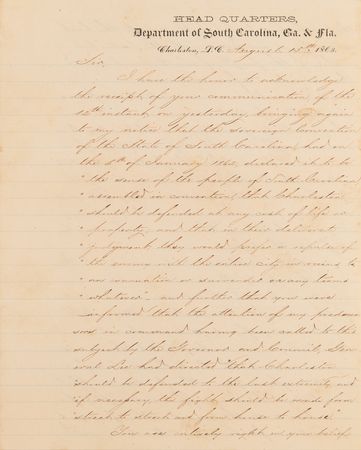 HEAD QUARTERS,
Department of South Carolina, Ga. & Fla.
Charleston, S.C. August 1863.
Sir,
I have the honor to acknowledge
the receipt of your communication of the
12th instant on yesterday, bringing again
to my notice that the Sovereign Convention
of the State of South Carolina, had on
the of January 1862 declared it to be
" the sense of the people of South Carolina
" assembled in convention, that Charleston
" should be defended at any cost of life or
" property, and that in their deliberate
" judgment, they would prefer a repulse of
" the enemy with the entire city in ruins to
" an evacuation or surrender on any terms
" whatever" and further that you were
informed that the attention of my predeces
sors in command having been called to this
subject by the Governor and Council, Gen
eral Lee had directed "that Charleston
should be defended to the last extremity and
if necessary the fight should be made from
street to street and from house to house."
You are entirely right in your belief